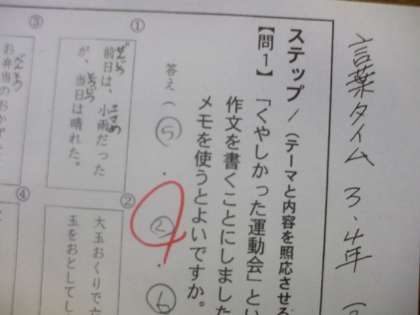 言葉タイム 3・4年
ステップ/(テーマと内容を照応させる
【問1】「くやしかった運動会」とい
作文を書くことにしました
メモを使うとよいですか。
答え(⑤・②・⑥
①
前日は、小雨だった
ぜんじつ こさめ
が、当日は晴れた。
とうじつ
②
大玉おくりで六
玉をおとしてし
③
お弁当のおかず
べんとう
④